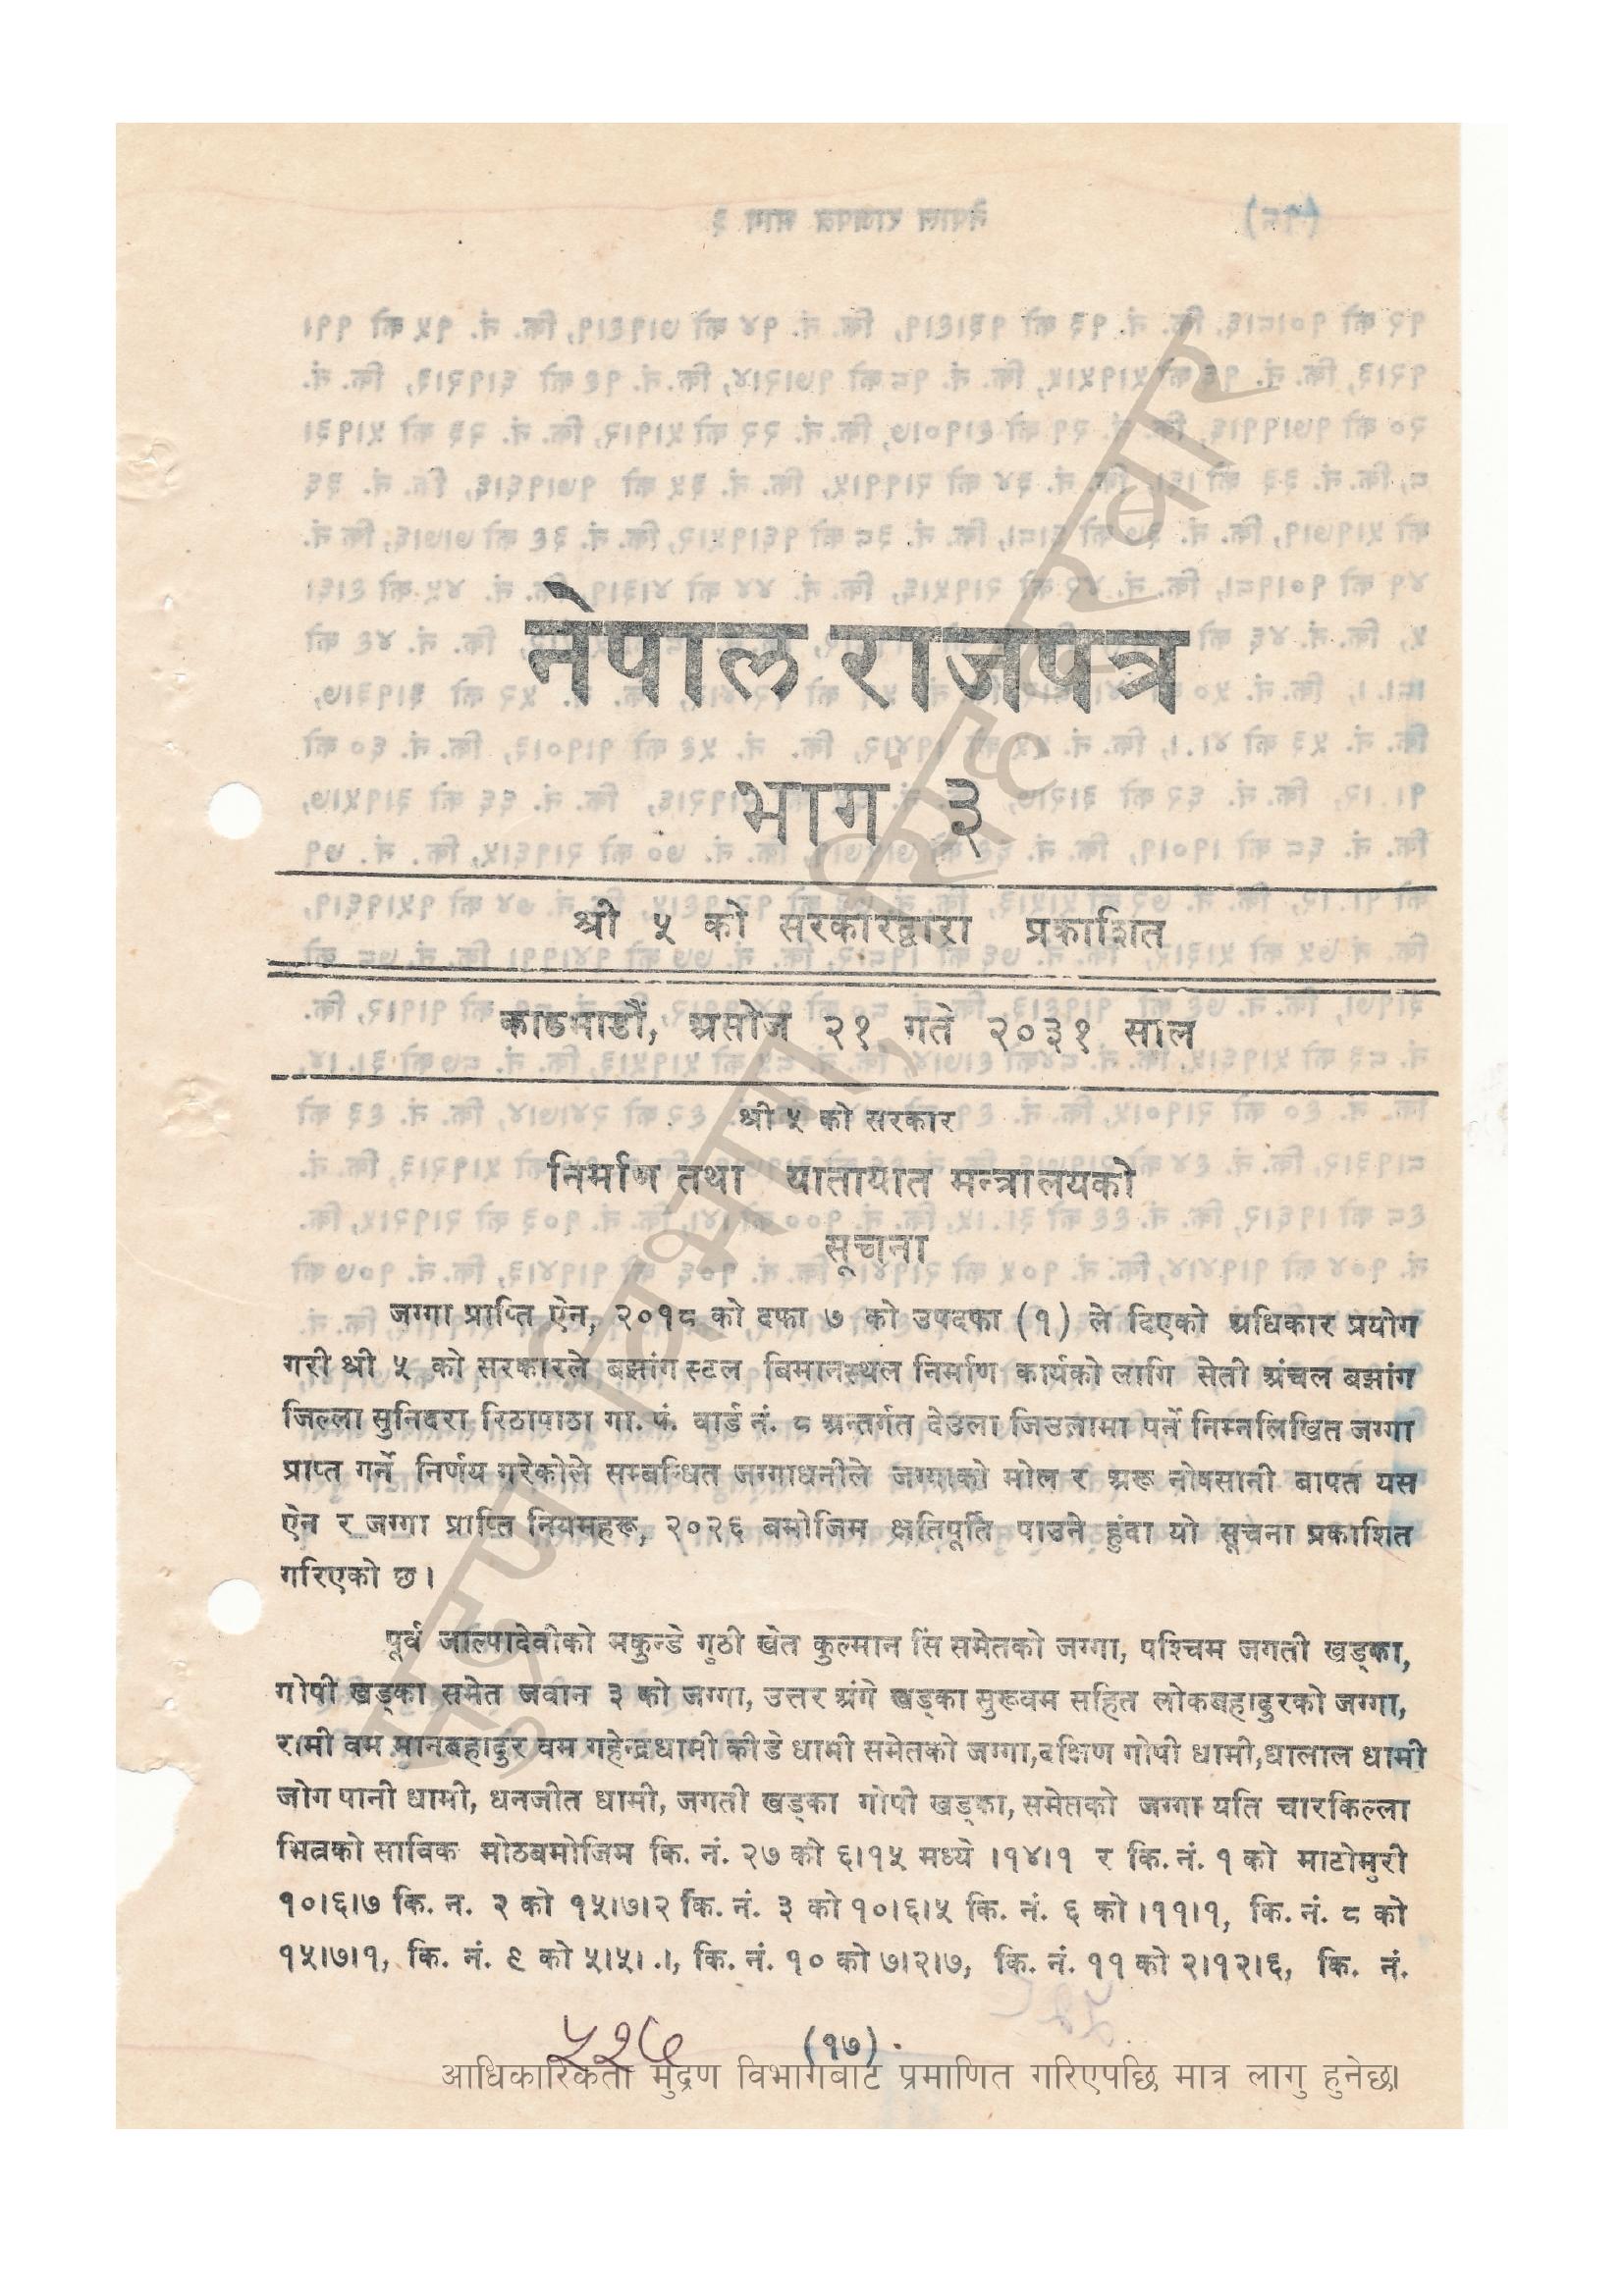 नेपाल राजपत्र
भाग ३
श्री ५ को सरकारद्वारा प्रकाशित
काठमाडौं, असोज २१ गते २०३१ साल
श्री ५ को सरकार
निर्माण तथा यातायात मन्त्रालयको
सूचना
जग्गा प्राप्ति ऐन, २०१८ को दफा ७ को उपदफा (१) ले दिएको अधिकार प्रयोग
गरी श्री ५ को सरकारले बझांग स्टल बिमानस्थल निर्माण कार्यको लागि सेती अंचल बझांग
जिल्ला सुनिदरा रिठापाठा गा. पं. वार्ड नं. ८ अन्तर्गत देउला जिउलामा पर्ने निम्नलिखित जग्गा
प्राप्त गर्ने निर्णय गरेकोले सम्बन्धित जग्गाधनीले जग्गाको मोल र अरू नोषसानी बापत यस
ऐन र जग्गा प्राप्ति नियमहरू, २०२६ बमोजिम क्षतिपूर्ति पाउने हुंदा यो सूचना प्रकाशित
गरिएको छ।
पूर्व जाल्पादेवीको मकुन्डे गुठी खेत कुल्मान सिं समेतको जग्गा, पश्चिम जगती खड्का,
गोपी खड्का समेत जवान ३ को जग्गा, उत्तर अंगे खड्का सुरूवम सहित लोकबहादुरको जग्गा,
रामी वम मानबहादुर वम गहेन्द्रधामी कीडे धामी समेतको जग्गा,दक्षिण गोपी धामी,धालाल धामी
जोग पानी धामी, धनजीत धामी, जगती खड्का गोपी खड्का, समेतको जग्गा यति चारकिल्ला
भित्रको साविक मोठबमोजिम कि. नं. २७ को ६।१५ मध्ये ।१४।१ र कि. नं. १ को माटोमुरी
१०।६।७ कि. न. २ को १५।७।२ कि. नं. ३ को १०।६।५ कि. नं. ६ को ।११।१, कि. नं. ८ को
१५।७।१, कि. नं. ९ को ५।५। .।, कि. नं. १० को ७।२।७, कि. नं. ११ को २।१२।६, कि. नं.
(१७)
आधिकारिकता मुद्रण विभागबाट प्रमाणित गरिएपछि मात्र लागु हुनेछ।